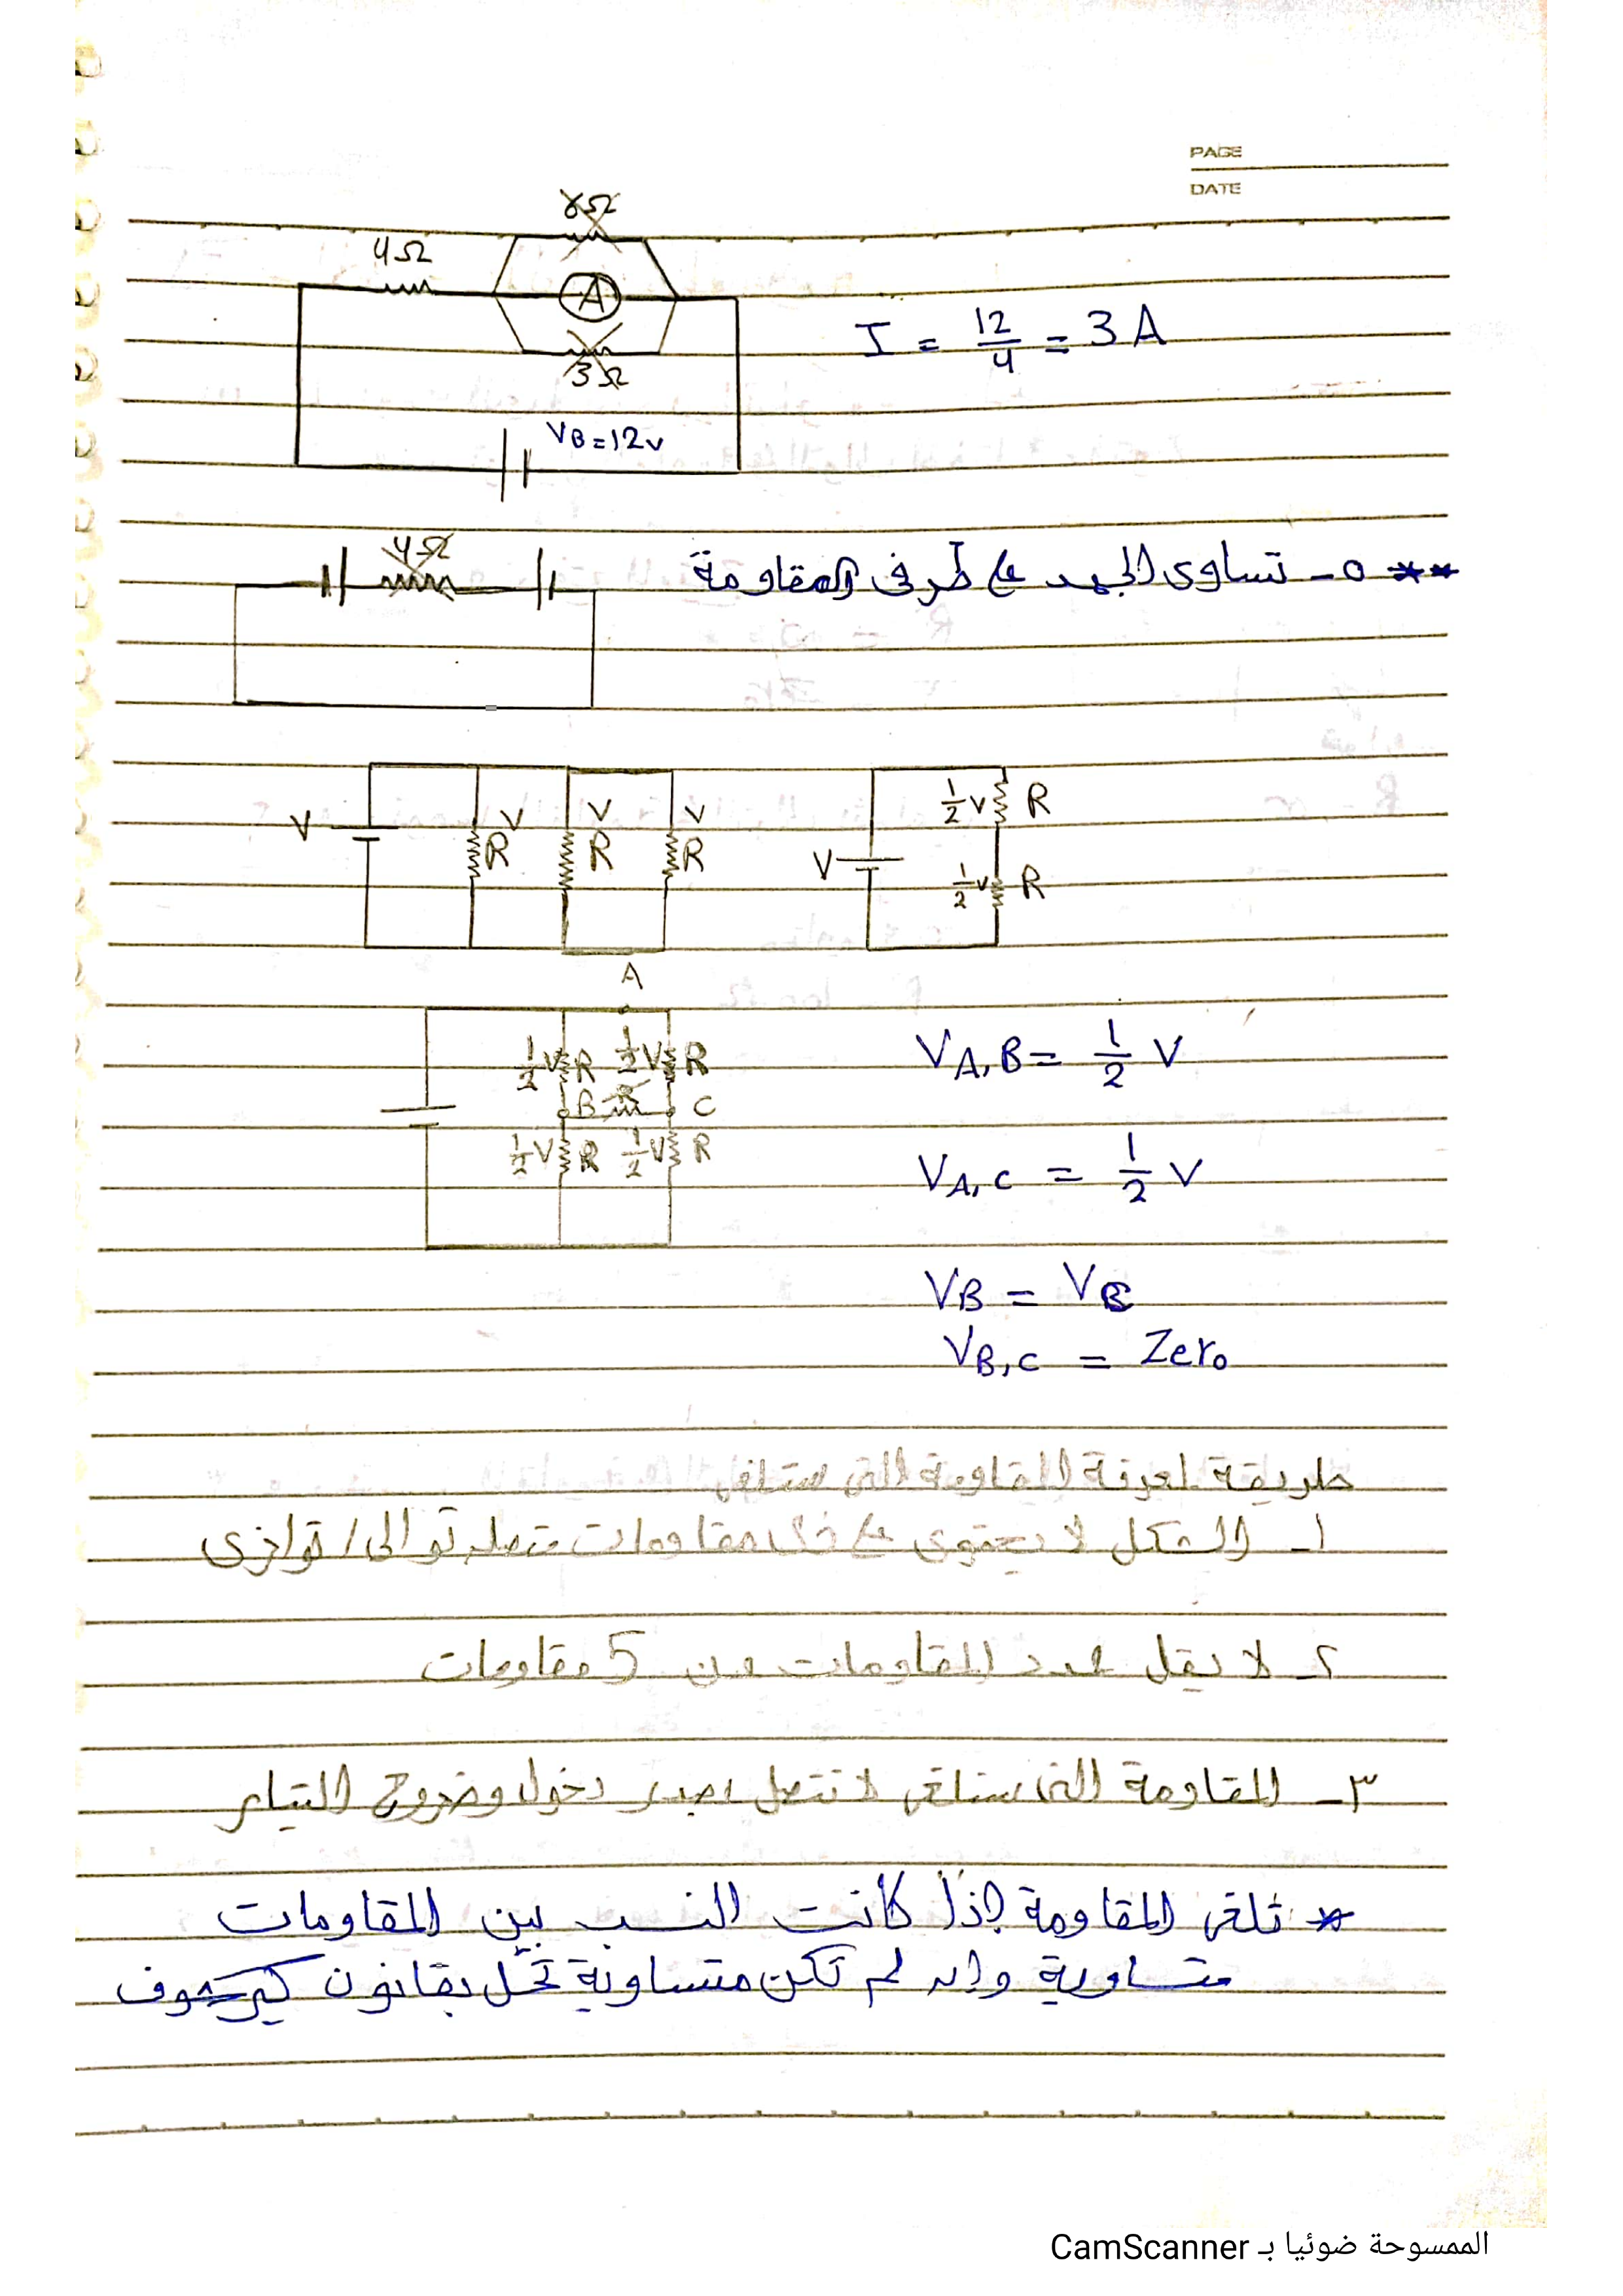 PAGE
DATE
6Ω
4Ω
A
3Ω
I = 12/4 = 3 A
VB = 12v
** ٥- تساوى الجهد على طرفى المقاومة
4Ω
V
V R
V R
V R
V
1/2 V R
1/2 V R
A
1/2 V R 1/2 V R
B R C
1/2 V R 1/2 V R
VA,B = 1/2 V
VA,C = 1/2 V
VB = VC
VB,C = Zero
طريقة لمعرفة المقاومة التى ستلغى
١- الشكل لا يحتوى على مقاومات متصله توالى / توازى
٢- لا يقل عدد المقاومات عن 5 مقاومات
٣- المقاومة التى ستلغى لا تتصل دخول وخروج التيار
* تلغى المقاومة إذا كانت النسب بين المقاومات
متساوية وإن لم تكن متساوية تحل بقانون كيرشوف
الممسوحة ضوئيا بـ CamScanner